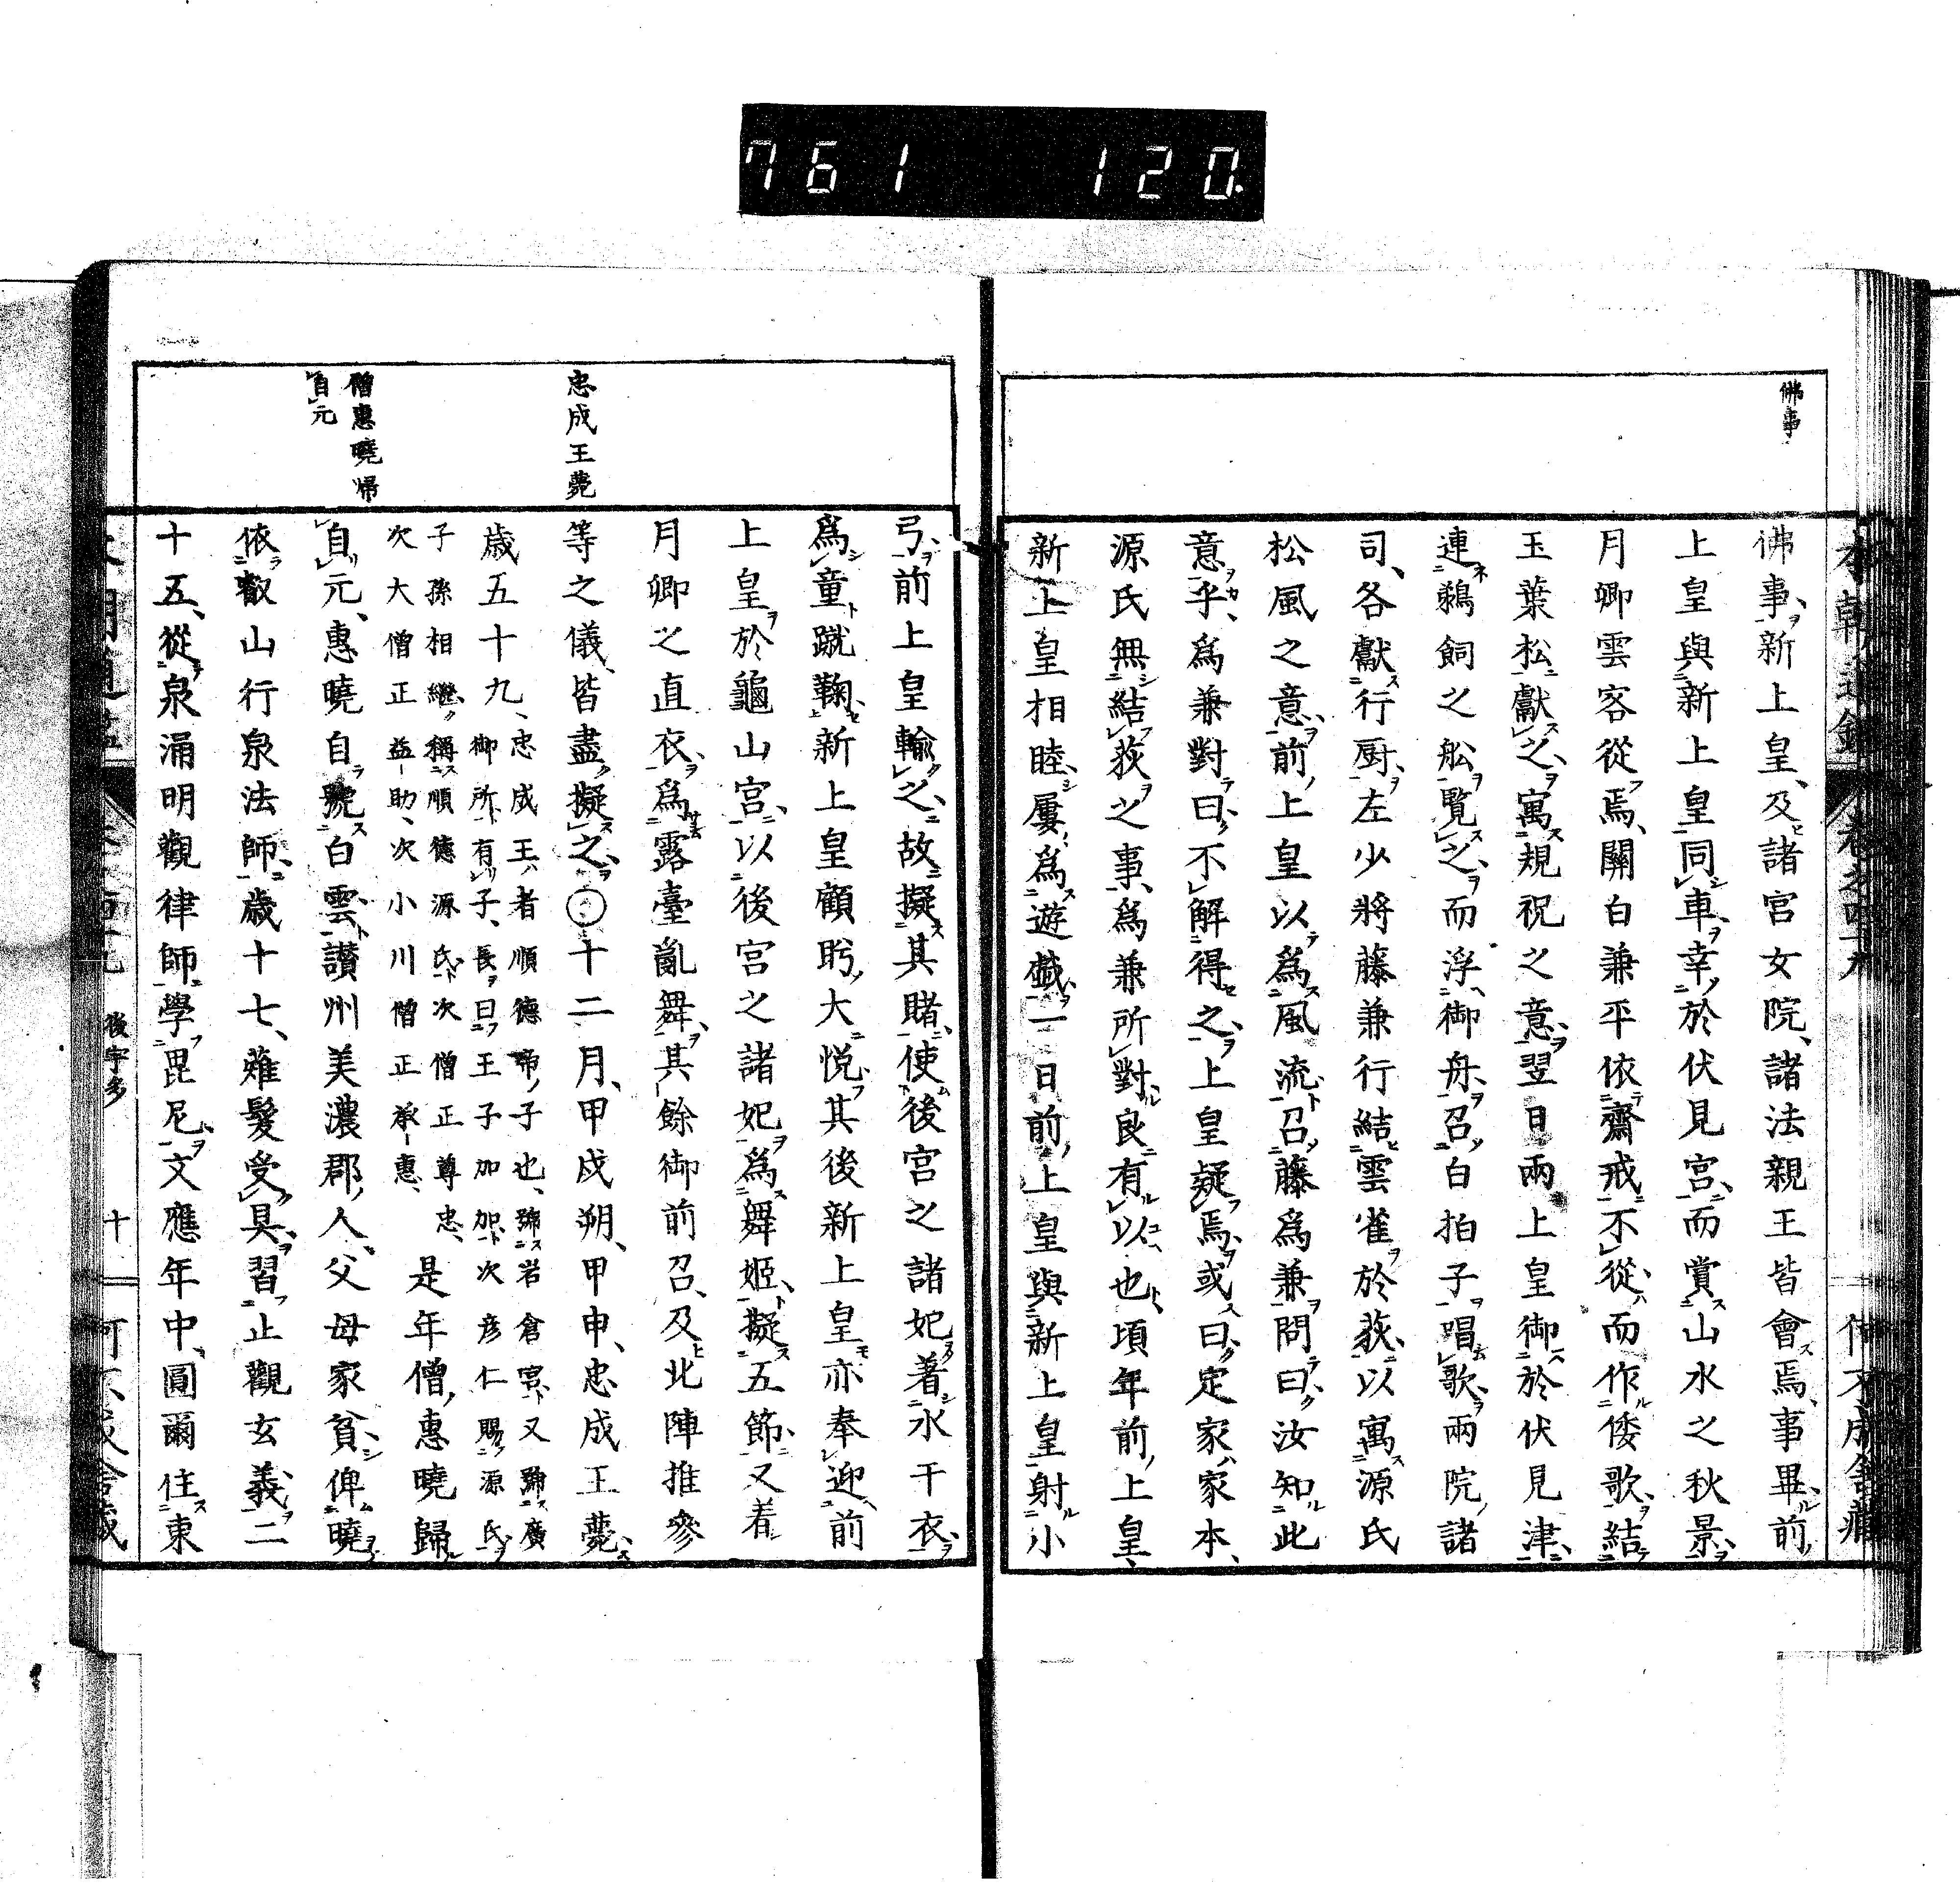 761 120.
佛事
佛事新上皇及諸宮女院諸法親王皆會焉事畢前
上皇與新上皇同車幸於伏見宮而賞山水之秋景
月卿雲客從焉關白兼平依齋戒不從而作倭歌結
玉葉松獻之寓規祝之意翌日兩上皇御於伏見津
連鵜飼之舩覧之而浮御舟召白拍子唱歌兩院諸
司各獻行厨左少將藤兼行結雲雀於荻以寓源氏
松風之意前上皇以為風流召藤為兼問曰汝知此
意乎為兼對曰不解得之上皇疑焉或曰定家家本
源氏無結荻之事為兼所對良有以也頃年前上皇
新上皇相睦屢為遊戲一日前上皇與新上皇射小
忠成王薨
僧惠曉歸
自元
弓前上皇輸之故擬其賭使後宮之諸妃着水干衣
為童蹴鞠新上皇顧眄大悦其後新上皇亦奉迎前
上皇於龜山宮以後宮之諸妃為舞姬擬五節又着
月卿之直衣為露臺亂舞其餘御前召及北陣推參
等之儀皆盡擬之○十二月甲戌朔甲申忠成王薨
歳五十九忠成王者順德帝子也號岩倉宮又號廣
御所有子長曰王子加加次彦仁賜源氏
子孫相繼稱順德源氏次僧正尊忠
次大僧正益助次小川僧正承惠是年僧惠曉歸
自元惠曉自號白雲讃州美濃郡人父母家貧俾曉
依叡山行泉法師歳十七薙髮受具習止觀玄義二
十五從泉涌明觀律師學毘尼文應年中圓爾住東
後宇多 十